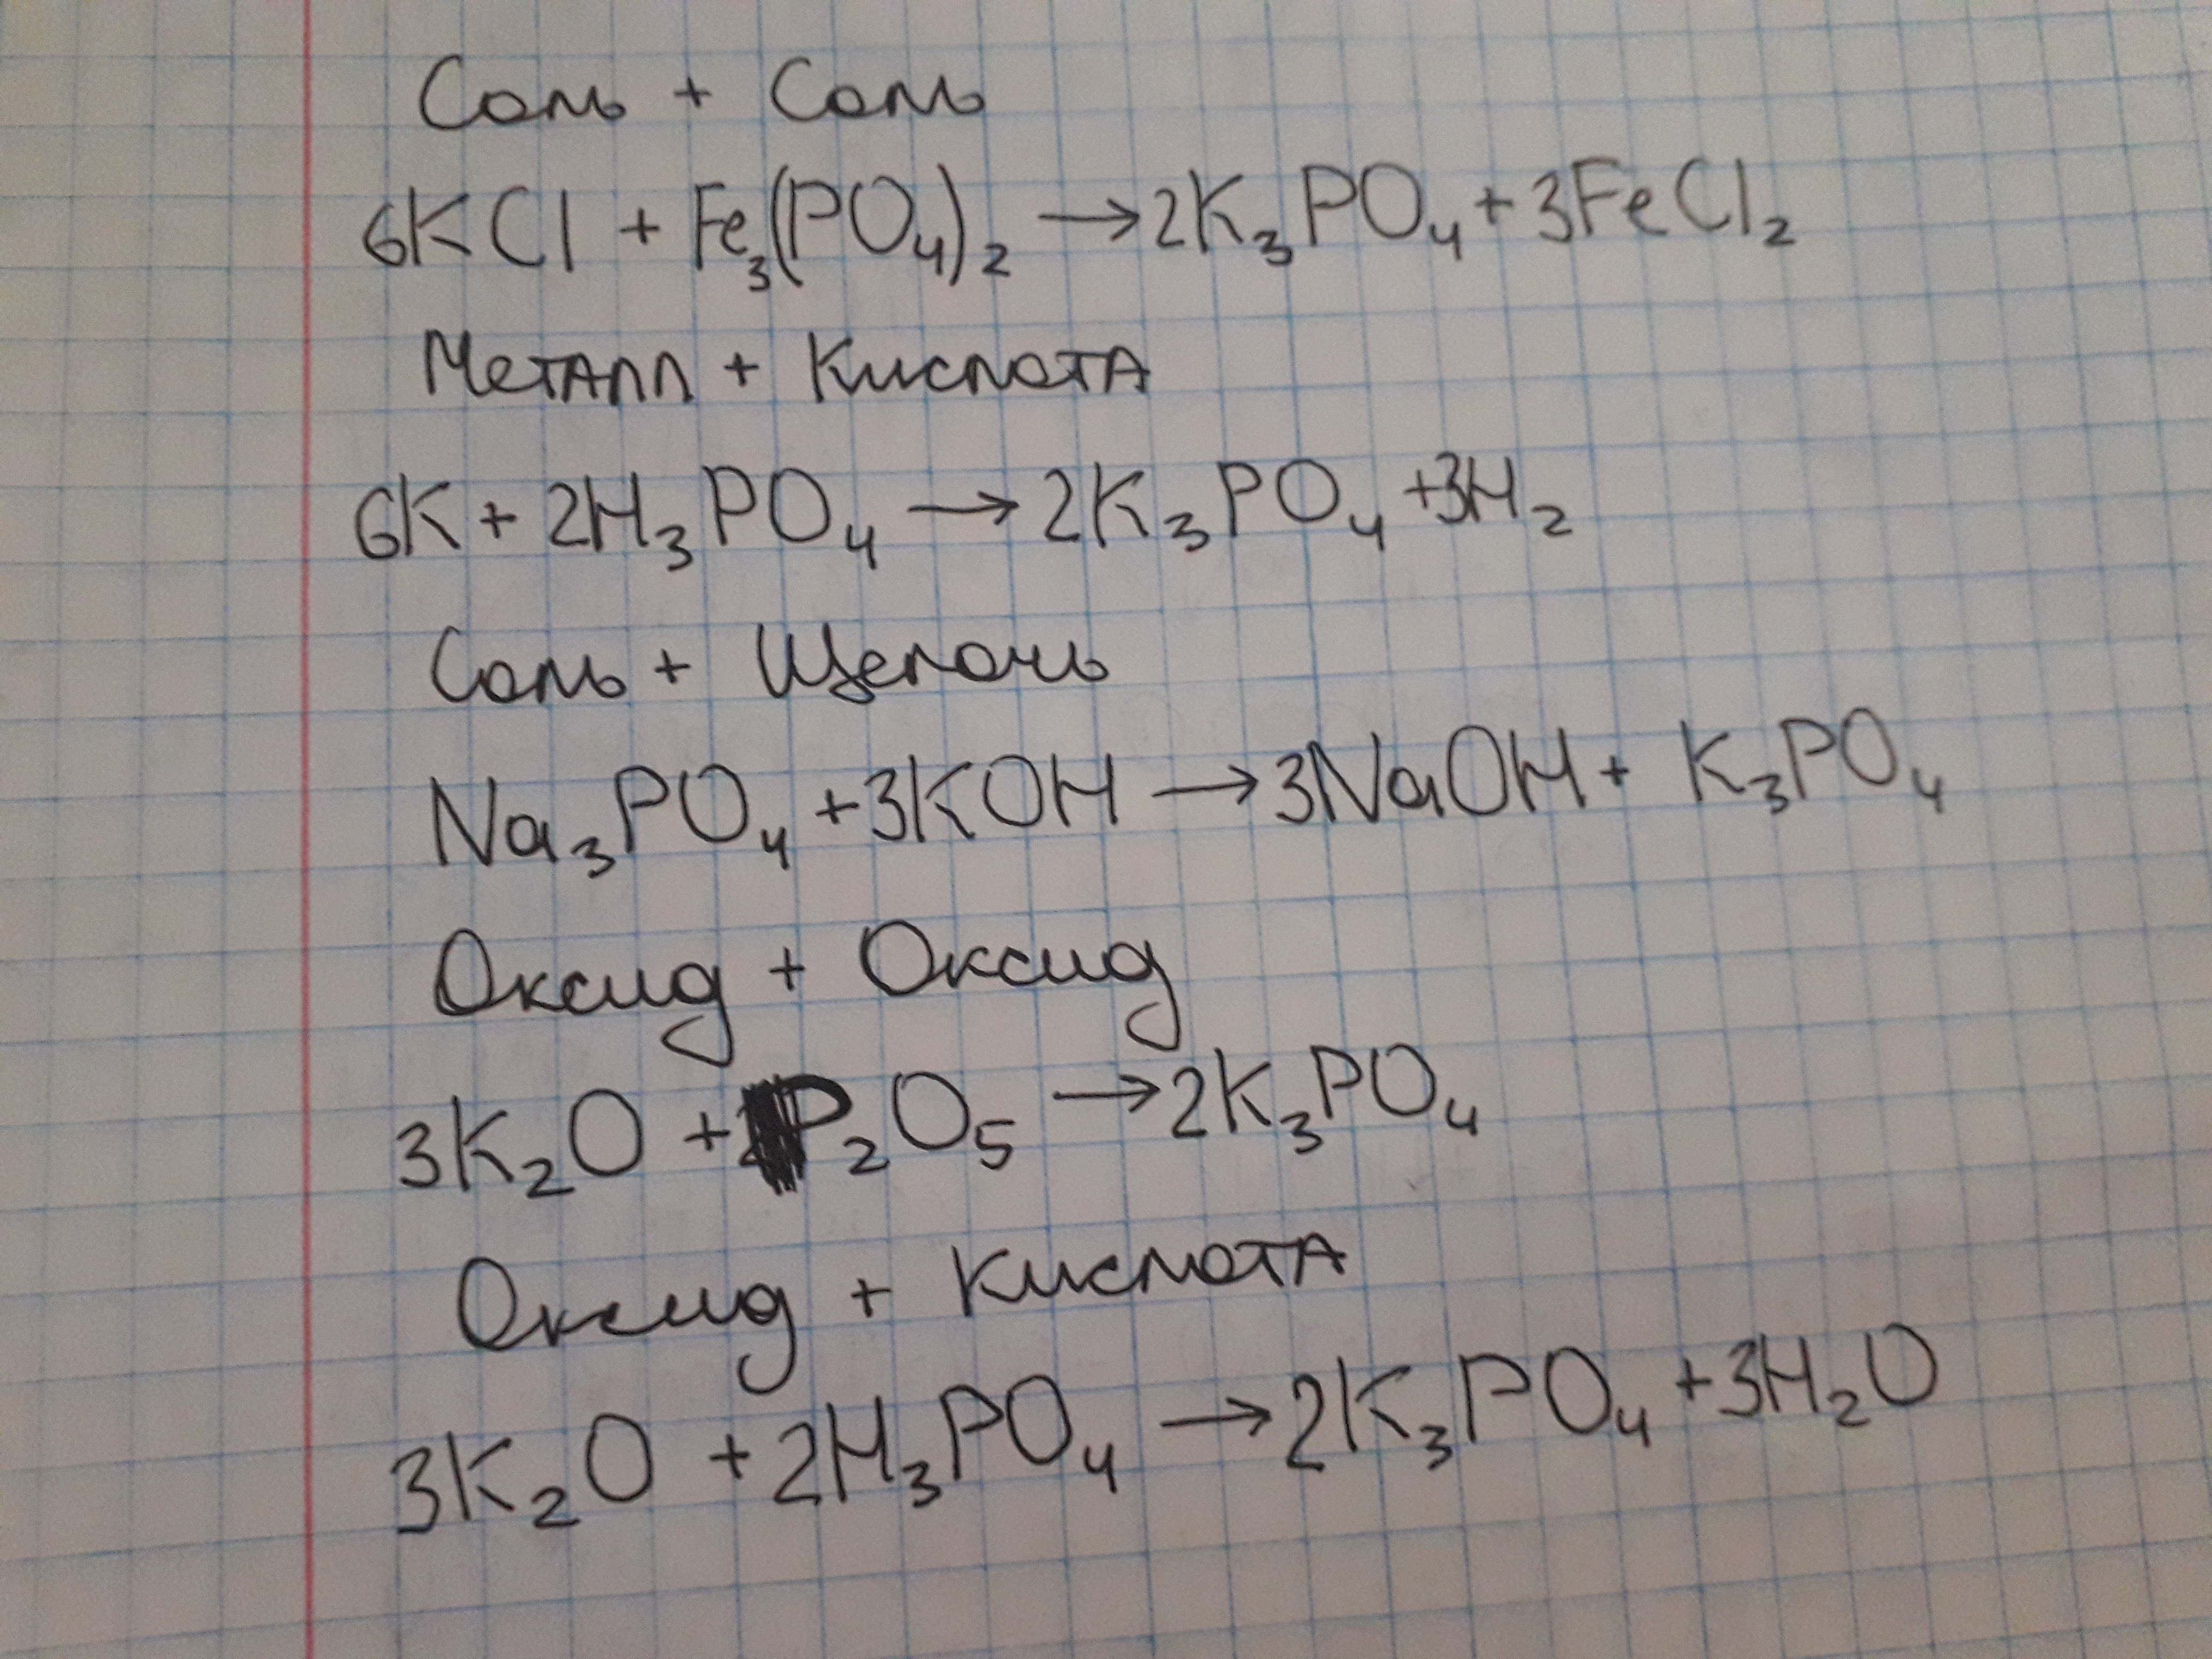 Соль + Соль
6KCl + Fe₃(PO₄)₂ → 2K₃PO₄ + 3FeCl₂
Металл + Кислота
6K + 2H₃PO₄ → 2K₃PO₄ + 3H₂
Соль + Щелочь
Na₃PO₄ + 3KOH → 3NaOH + K₃PO₄
Оксид + Оксид
3K₂O + P₂O₅ → 2K₃PO₄
Оксид + Кислота
3K₂O + 2H₃PO₄ → 2K₃PO₄ + 3H₂O